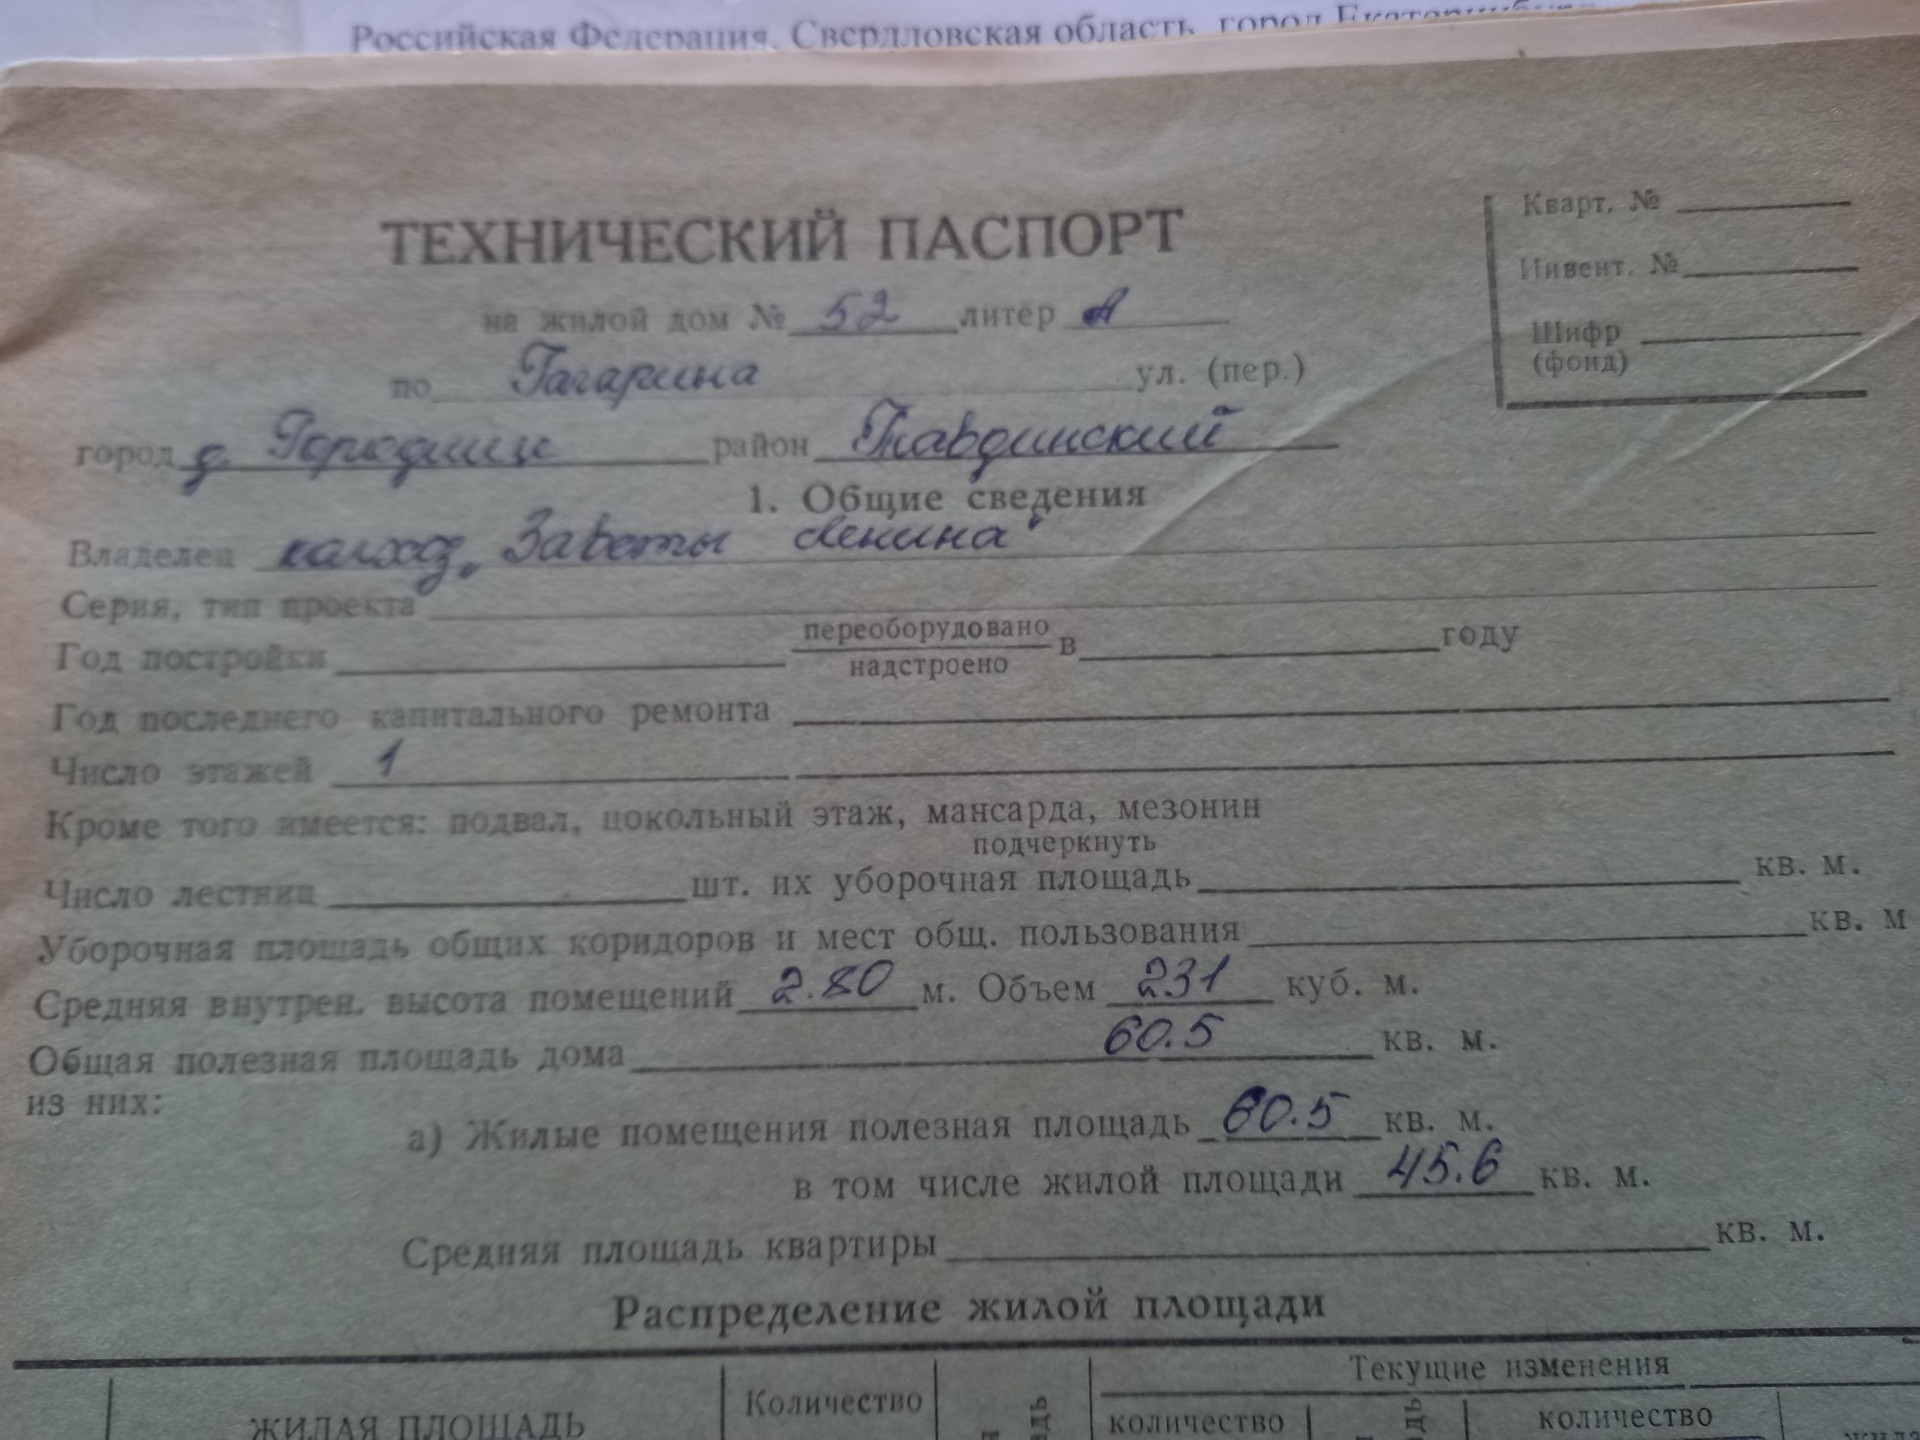 Российская Федерация, Свердловская область, город Екатеринбург
ТЕХНИЧЕСКИЙ ПАСПОРТ
Кварт. №
Инвент. №
Шифр
(фонд)
на жилой дом № 52 литер А
по Гагарина ул. (пер.)
город д. Городище район Тавдинский
1. Общие сведения
Владелец колхоз „Заветы Ленина"
Серия, тип проекта
Год постройки переоборудовано
надстроено в году
Год последнего капитального ремонта
Число этажей 1
Кроме того имеется: подвал, цокольный этаж, мансарда, мезонин
подчеркнуть
Число лестниц шт. их уборочная площадь кв. м.
Уборочная площадь общих коридоров и мест общ. пользования кв. м
Средняя внутрен. высота помещений 2.80 м. Объем 231 куб. м.
Общая полезная площадь дома 60.5 кв. м.
из них:
а) Жилые помещения полезная площадь 60.5 кв. м.
в том числе жилой площади 45.6 кв. м.
Средняя площадь квартиры кв. м.
Распределение жилой площади
Текущие изменения
ЖИЛАЯ ПЛОЩАДЬ
Количество
количество
количество